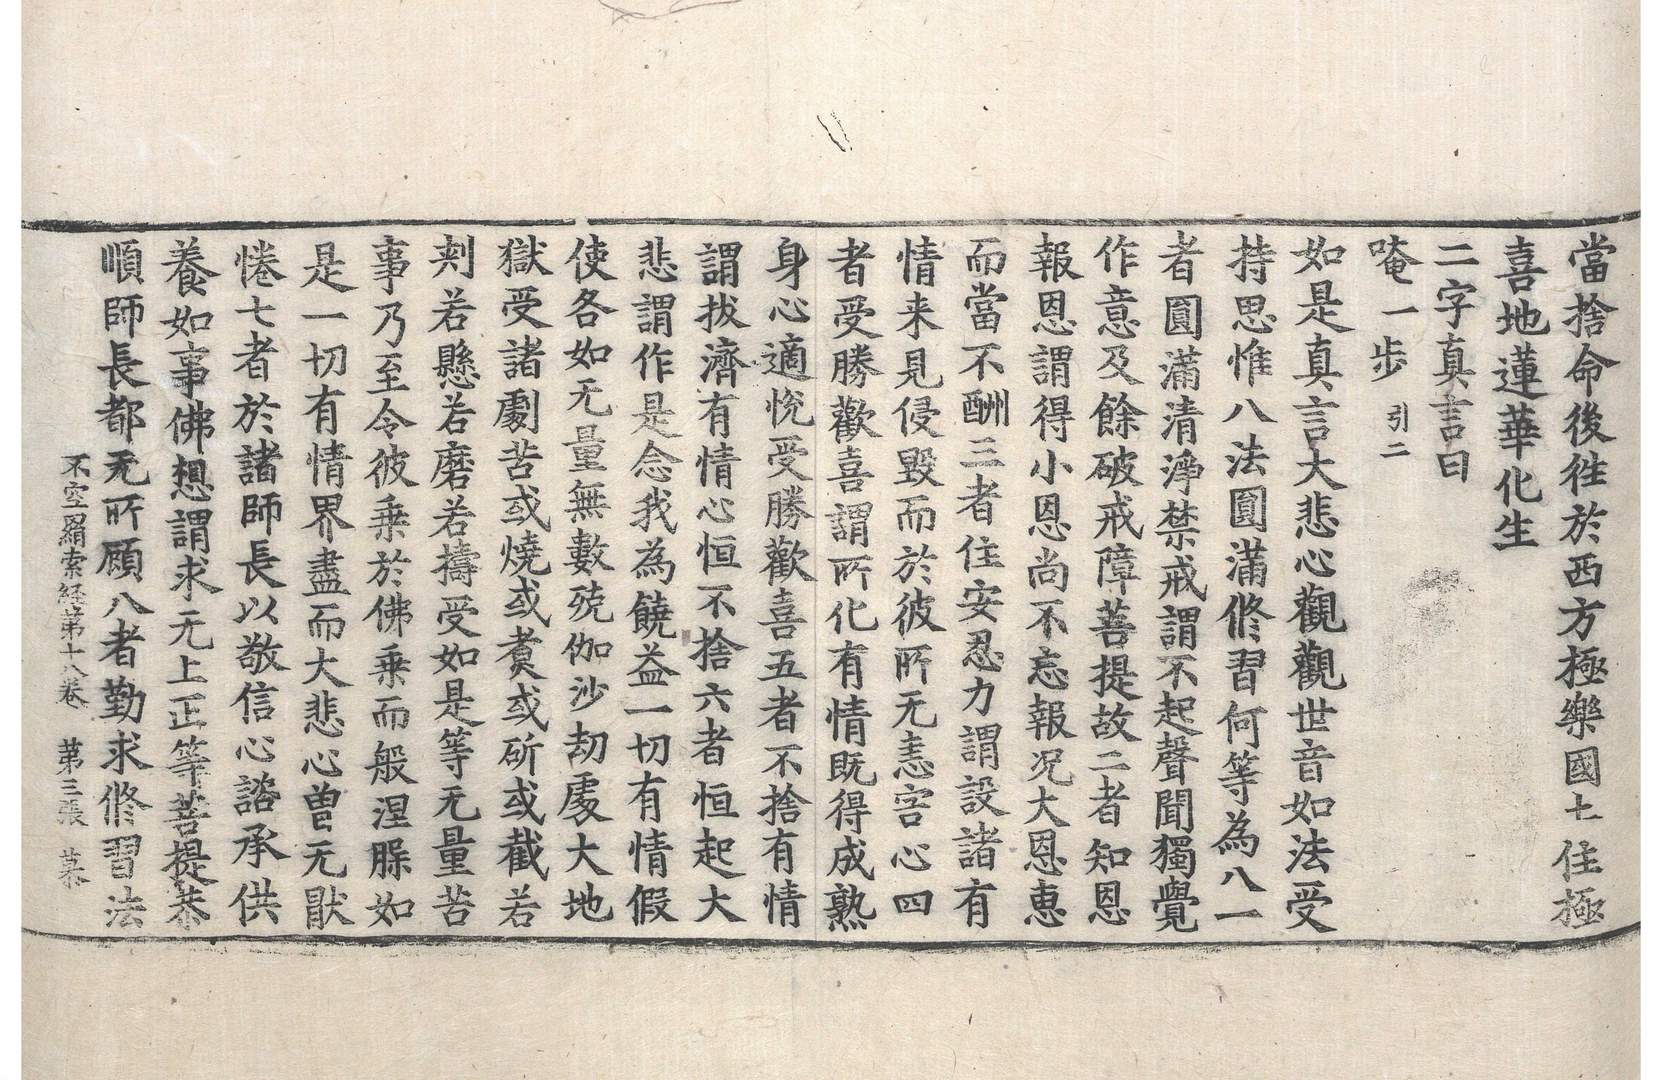 當捨命後徃於西方極樂國土住極
喜地蓮華化生
二字真言曰
唵一步 引二
如是真言大悲心觀觀世音如法受
持思惟八法圓滿修習何等為八一
者圓滿清淨禁戒謂不起聲聞獨覺
作意及餘破戒障菩提故二者知恩
報恩謂得小恩尚不忘報况大恩恵
而當不酬三者住安忍力謂設諸有
情来見侵毀而於彼所无恚害心四
者受勝歡喜謂所化有情既得成熟
身心適恱受勝歡喜五者不捨有情
謂拔濟有情心恒不捨六者恒起大
悲謂作是念我為饒益一切有情假
使各如无量無數殑伽沙劫處大地
獄受諸劇苦或燒或煑或斫或截若
刾若懸若磨若擣受如是等无量苦
事乃至令彼乗於佛乗而般涅槃如
是一切有情界盡而大悲心曽无猒
惓七者於諸師長以敬信心諮承供
養如事佛想謂求无上正等菩提恭
不空羂索経第十八卷 第三張 慕
順師長都无所顧八者勤求修習法